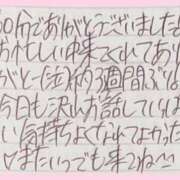 00分でありがとうございました
お忙しい中来てくれてあり
がと〜(注)約3週間ぶりな
今日も沢山お話していっぱ
い気持ちよくなれてよかった
いまたいつでも来てね〜